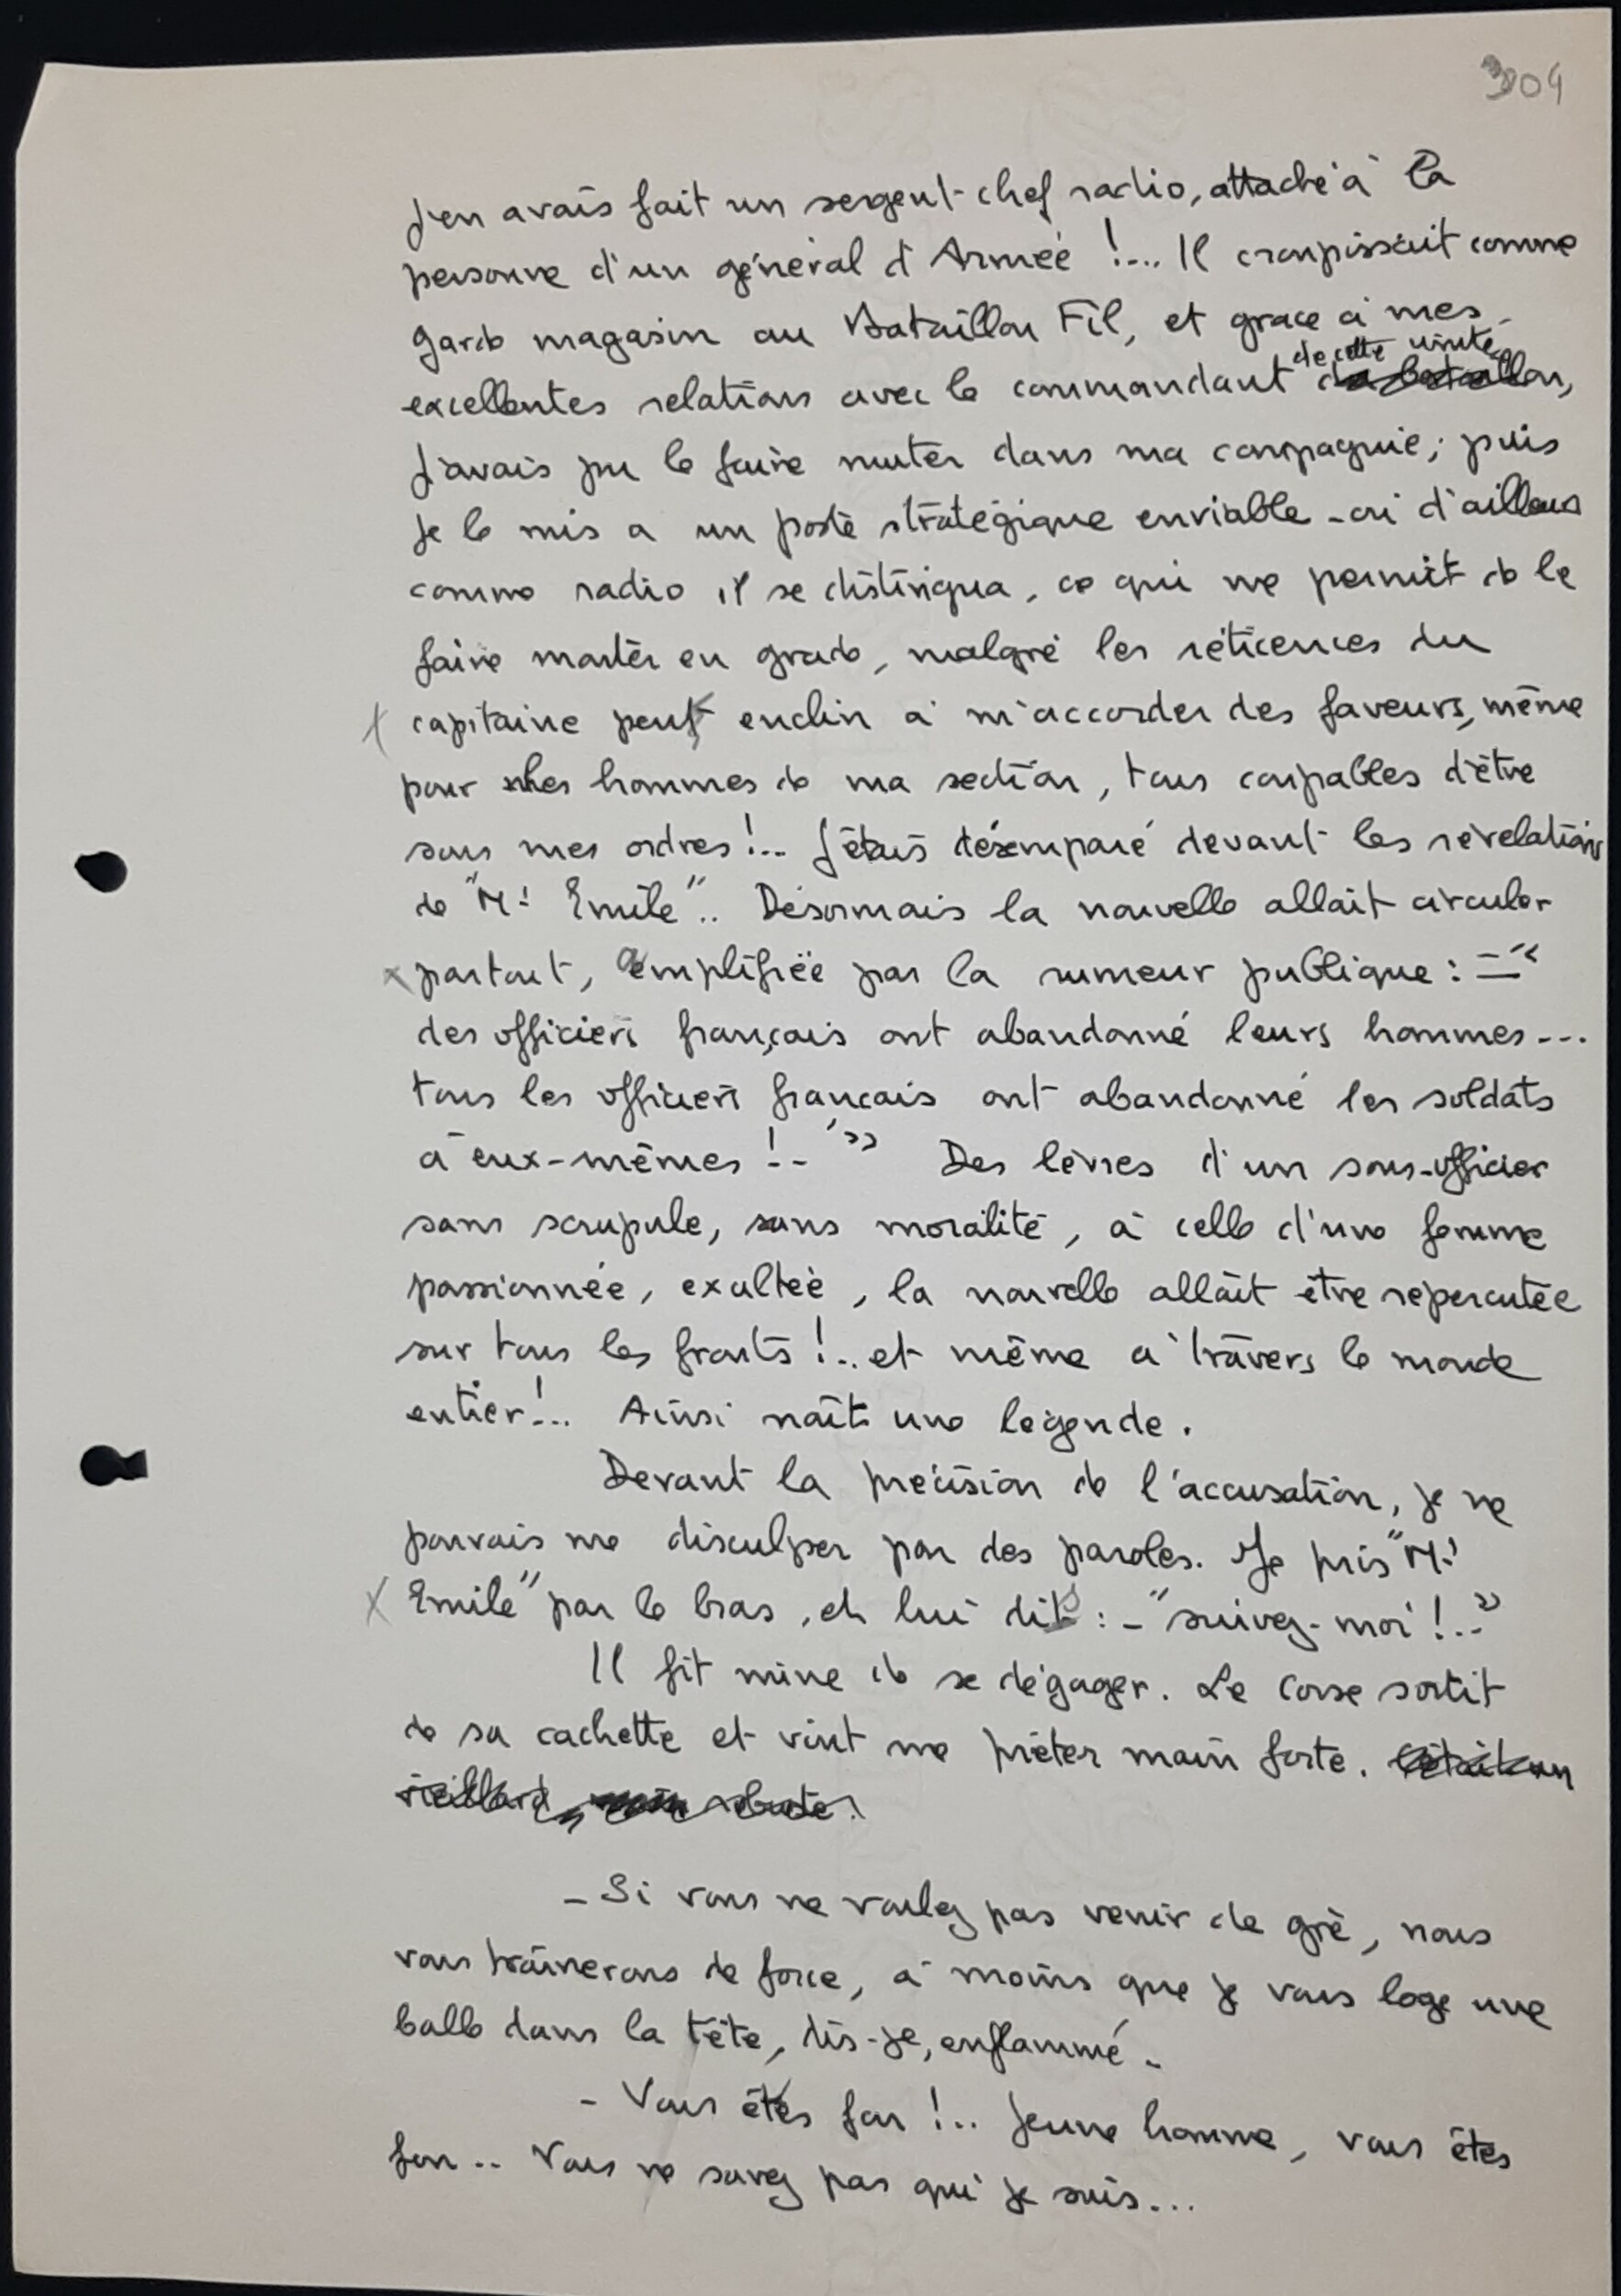 304
J'en avais fait un sergent-chef radio, attaché à la
personne d'un général d'Armée !... Il croupissait comme
garde magasin au Bataillon Fil, et grace à mes
excellentes relations avec le commandant de cette unité du bataillon,
j'avais pu le faire muter dans ma compagnie; puis
je le mis a un poste stratégique enviable - où d'ailleurs
comme radio il se distingua, ce qui me permit de le
faire monter en grade, malgré les réticences du
capitaine peu enclin à m'accorder des faveurs, même
pour les hommes de ma section, tous coupables d'être
sous mes ordres !.. J'étais désemparé devant les révélations
de "Mr Emile".. Désormais la nouvelle allait circuler
partout, amplifiée par la rumeur publique : - "
des officiers français ont abandonné leurs hommes...
tous les officiers français ont abandonné les soldats
à eux-mêmes !.. " Des lèvres d'un sous-officier
sans scrupule, sans moralité, à celle d'une femme
passionnée, exaltée, la nouvelle allait être repercutée
sur tous les fronts !.. et même à travers le monde
entier !... Ainsi naît une légende.
Devant la précision de l'accusation, je ne
pouvais me disculper par des paroles. Je pris "Mr
Emile" par le bras, et lui dis : - "suivez-moi !.."
Il fit mine de se dégager. Le Corse sortit
de sa cachette et vint me prêter main forte. C'était un
vieillard, robuste.
- Si vous ne voulez pas venir de gré, nous
vous traînerons de force, à moins que je vous loge une
balle dans la tête, dis-je, enflammé.
- Vous êtes fou !.. Jeune homme, vous êtes
fou .. Vous ne savez pas qui je suis...